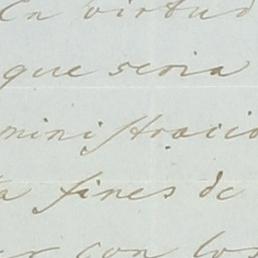 En virtud
que seria
ministracio
a fines de
er con los